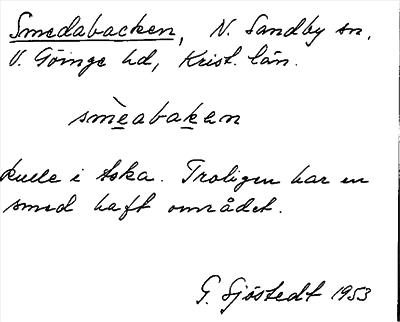 Smedabacken, N. Sandby sn,
V. Göinge hd, Krist. län.
smèabaken
kulle i Aska. Troligen har en
smed haft området.
G. Sjöstedt 1953